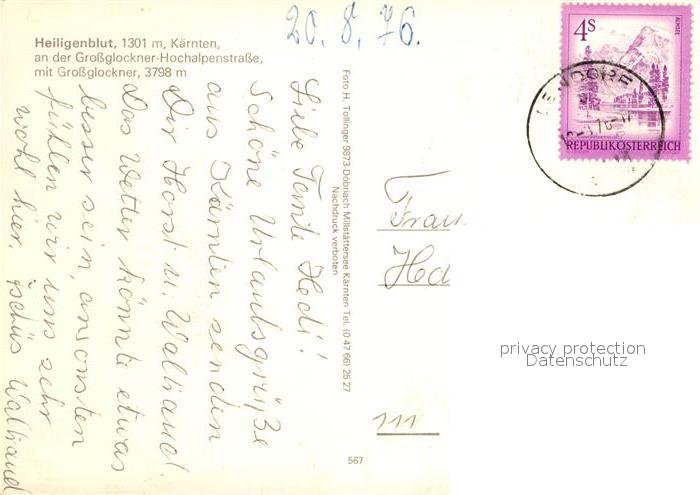 20. 8. 76.
Heiligenblut, 1301 m, Kärnten,
an der Großglockner-Hochalpenstraße,
mit Großglockner, 3798 m
Liebe Tante Hedi!
Schöne Urlaubsgrüße
aus Kärnten senden
Dir Horst u. Waltraud.
Das Wetter könnte etwas
besser sein, ansonsten
fühlen wir uns sehr
wohl hier. Tschüs Waltraud
Foto H. Tollinger 9873 Döbriach Millstättersee Kärnten Tel. (0 47 66) 25 27
Nachdruck verboten
4S
ALMSEE
REPUBLIK ÖSTERREICH
Frau
Hed
111
567
privacy protection
Datenschutz